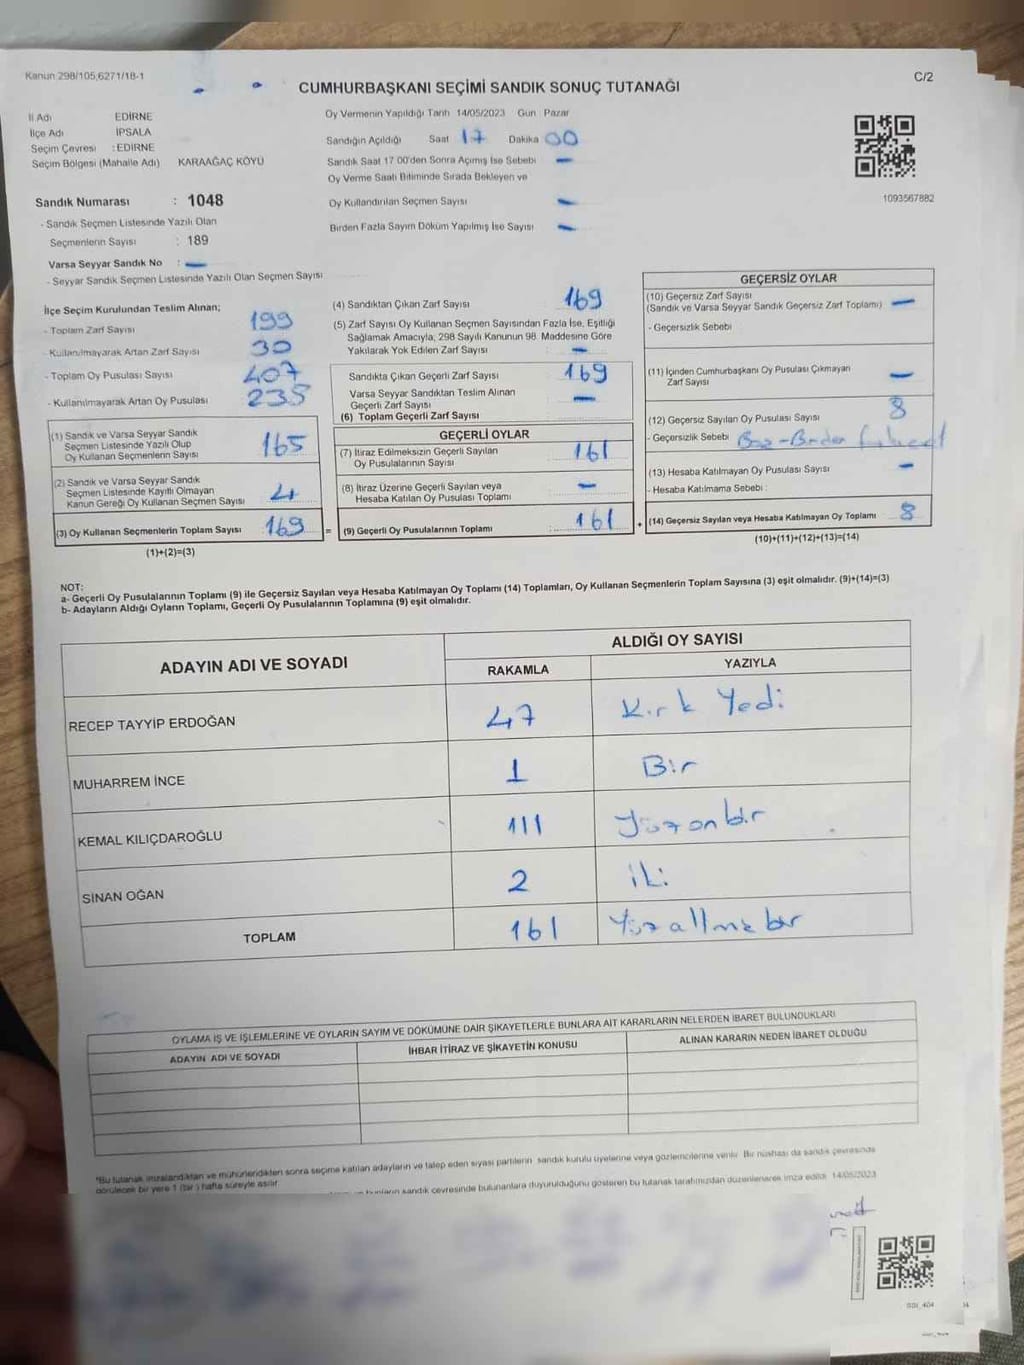 Kanun 298/105,6271/18-1
C/2
CUMHURBAŞKANI SEÇİMİ SANDIK SONUÇ TUTANAĞI
İl Adı EDİRNE
İlçe Adı İPSALA
Seçim Çevresi : EDİRNE
Seçim Bölgesi (Mahalle Adı) KARAAĞAÇ KÖYÜ
Sandık Numarası : 1048
- Sandık Seçmen Listesinde Yazılı Olan
Seçmenlerin Sayısı : 189
Varsa Seyyar Sandık No : –
- Seyyar Sandık Seçmen Listesinde Yazılı Olan Seçmen Sayısı
Oy Vermenin Yapıldığı Tarih 14/05/2023 Gün Pazar
Sandığın Açıldığı Saat 17 Dakika 00
Sandık Saat 17 00'den Sonra Açımış İse Sebebi –
Oy Verme Saati Bitiminde Sırada Bekleyen ve
Oy Kullandırılan Seçmen Sayısı –
Birden Fazla Sayım Döküm Yapılmış İse Sayısı –
1093567882
İlçe Seçim Kurulundan Teslim Alınan;
- Toplam Zarf Sayısı 199
- Kullanılmayarak Artan Zarf Sayısı 30
- Toplam Oy Pusulası Sayısı 407
- Kullanılmayarak Artan Oy Pusulası 235
(1) Sandık ve Varsa Seyyar Sandık
Seçmen Listesinde Yazılı Olup
Oy Kullanan Seçmenlerin Sayısı 165
(2) Sandık ve Varsa Seyyar Sandık
Seçmen Listesinde Kayıtlı Olmayan
Kanun Gereği Oy Kullanan Seçmen Sayısı 4
(3) Oy Kullanan Seçmenlerin Toplam Sayısı 169
(1)+(2)=(3)
(4) Sandıktan Çıkan Zarf Sayısı 169
(5) Zarf Sayısı Oy Kullanan Seçmen Sayısından Fazla İse, Eşitliği
Sağlamak Amacıyla, 298 Sayılı Kanunun 98. Maddesine Göre
Yakılarak Yok Edilen Zarf Sayısı –
Sandıkta Çıkan Geçerli Zarf Sayısı 169
Varsa Seyyar Sandıktan Teslim Alınan
Geçerli Zarf Sayısı –
(6) Toplam Geçerli Zarf Sayısı
GEÇERLİ OYLAR
(7) İtiraz Edilmeksizin Geçerli Sayılan
Oy Pusulalarının Sayısı 161
(8) İtiraz Üzerine Geçerli Sayılan veya
Hesaba Katılan Oy Pusulası Toplamı –
= (9) Geçerli Oy Pusulalarının Toplamı : 161
GEÇERSİZ OYLAR
(10) Geçersiz Zarf Sayısı
(Sandık ve Varsa Seyyar Sandık Geçersiz Zarf Toplamı) –
- Geçersizlik Sebebi
(11) İçinden Cumhurbaşkanı Oy Pusulası Çıkmayan
Zarf Sayısı –
(12) Geçersiz Sayılan Oy Pusulası Sayısı 8
- Geçersizlik Sebebi
(13) Hesaba Katılmayan Oy Pusulası Sayısı –
- Hesaba Katılmama Sebebi :
+ (14) Geçersiz Sayılan veya Hesaba Katılmayan Oy Toplamı 8
(10)+(11)+(12)+(13)=(14)
NOT:
a- Geçerli Oy Pusulalarının Toplamı (9) ile Geçersiz Sayılan veya Hesaba Katılmayan Oy Toplamı (14) Toplamları, Oy Kullanan Seçmenlerin Toplam Sayısına (3) eşit olmalıdır. (9)+(14)=(3)
b- Adayların Aldığı Oyların Toplamı, Geçerli Oy Pusulalarının Toplamına (9) eşit olmalıdır.
ADAYIN ADI VE SOYADI ALDIĞI OY SAYISI
RAKAMLA YAZIYLA
RECEP TAYYİP ERDOĞAN 47 Kırk Yedi
MUHARREM İNCE 1 Bir
KEMAL KILIÇDAROĞLU 111 Yüzonbir
SİNAN OĞAN 2 iki
TOPLAM 161 Yüzaltmışbir
OYLAMA İŞ VE İŞLEMLERİNE VE OYLARIN SAYIM VE DÖKÜMÜNE DAİR ŞİKAYETLERLE BUNLARA AİT KARARLARIN NELERDEN İBARET BULUNDUKLARI
ADAYIN ADI VE SOYADI İHBAR İTİRAZ VE ŞİKAYETİN KONUSU ALINAN KARARIN NEDEN İBARET OLDUĞU
*Bu tutanak imzalandıktan ve mühürlendikten sonra seçime katılan adayların ve talep eden siyasi partilerin sandık kurulu üyelerine veya gözlemcilerine verilir. Bir nüshası da sandık çevresinde
görülecek bir yere 1 (bir ) hafta süreyle asılır.
sandık çevresinde bulunanlara duyurulduğunu gösteren bu tutanak tarafımızdan düzenlenerek imza edildi 14/05/2023